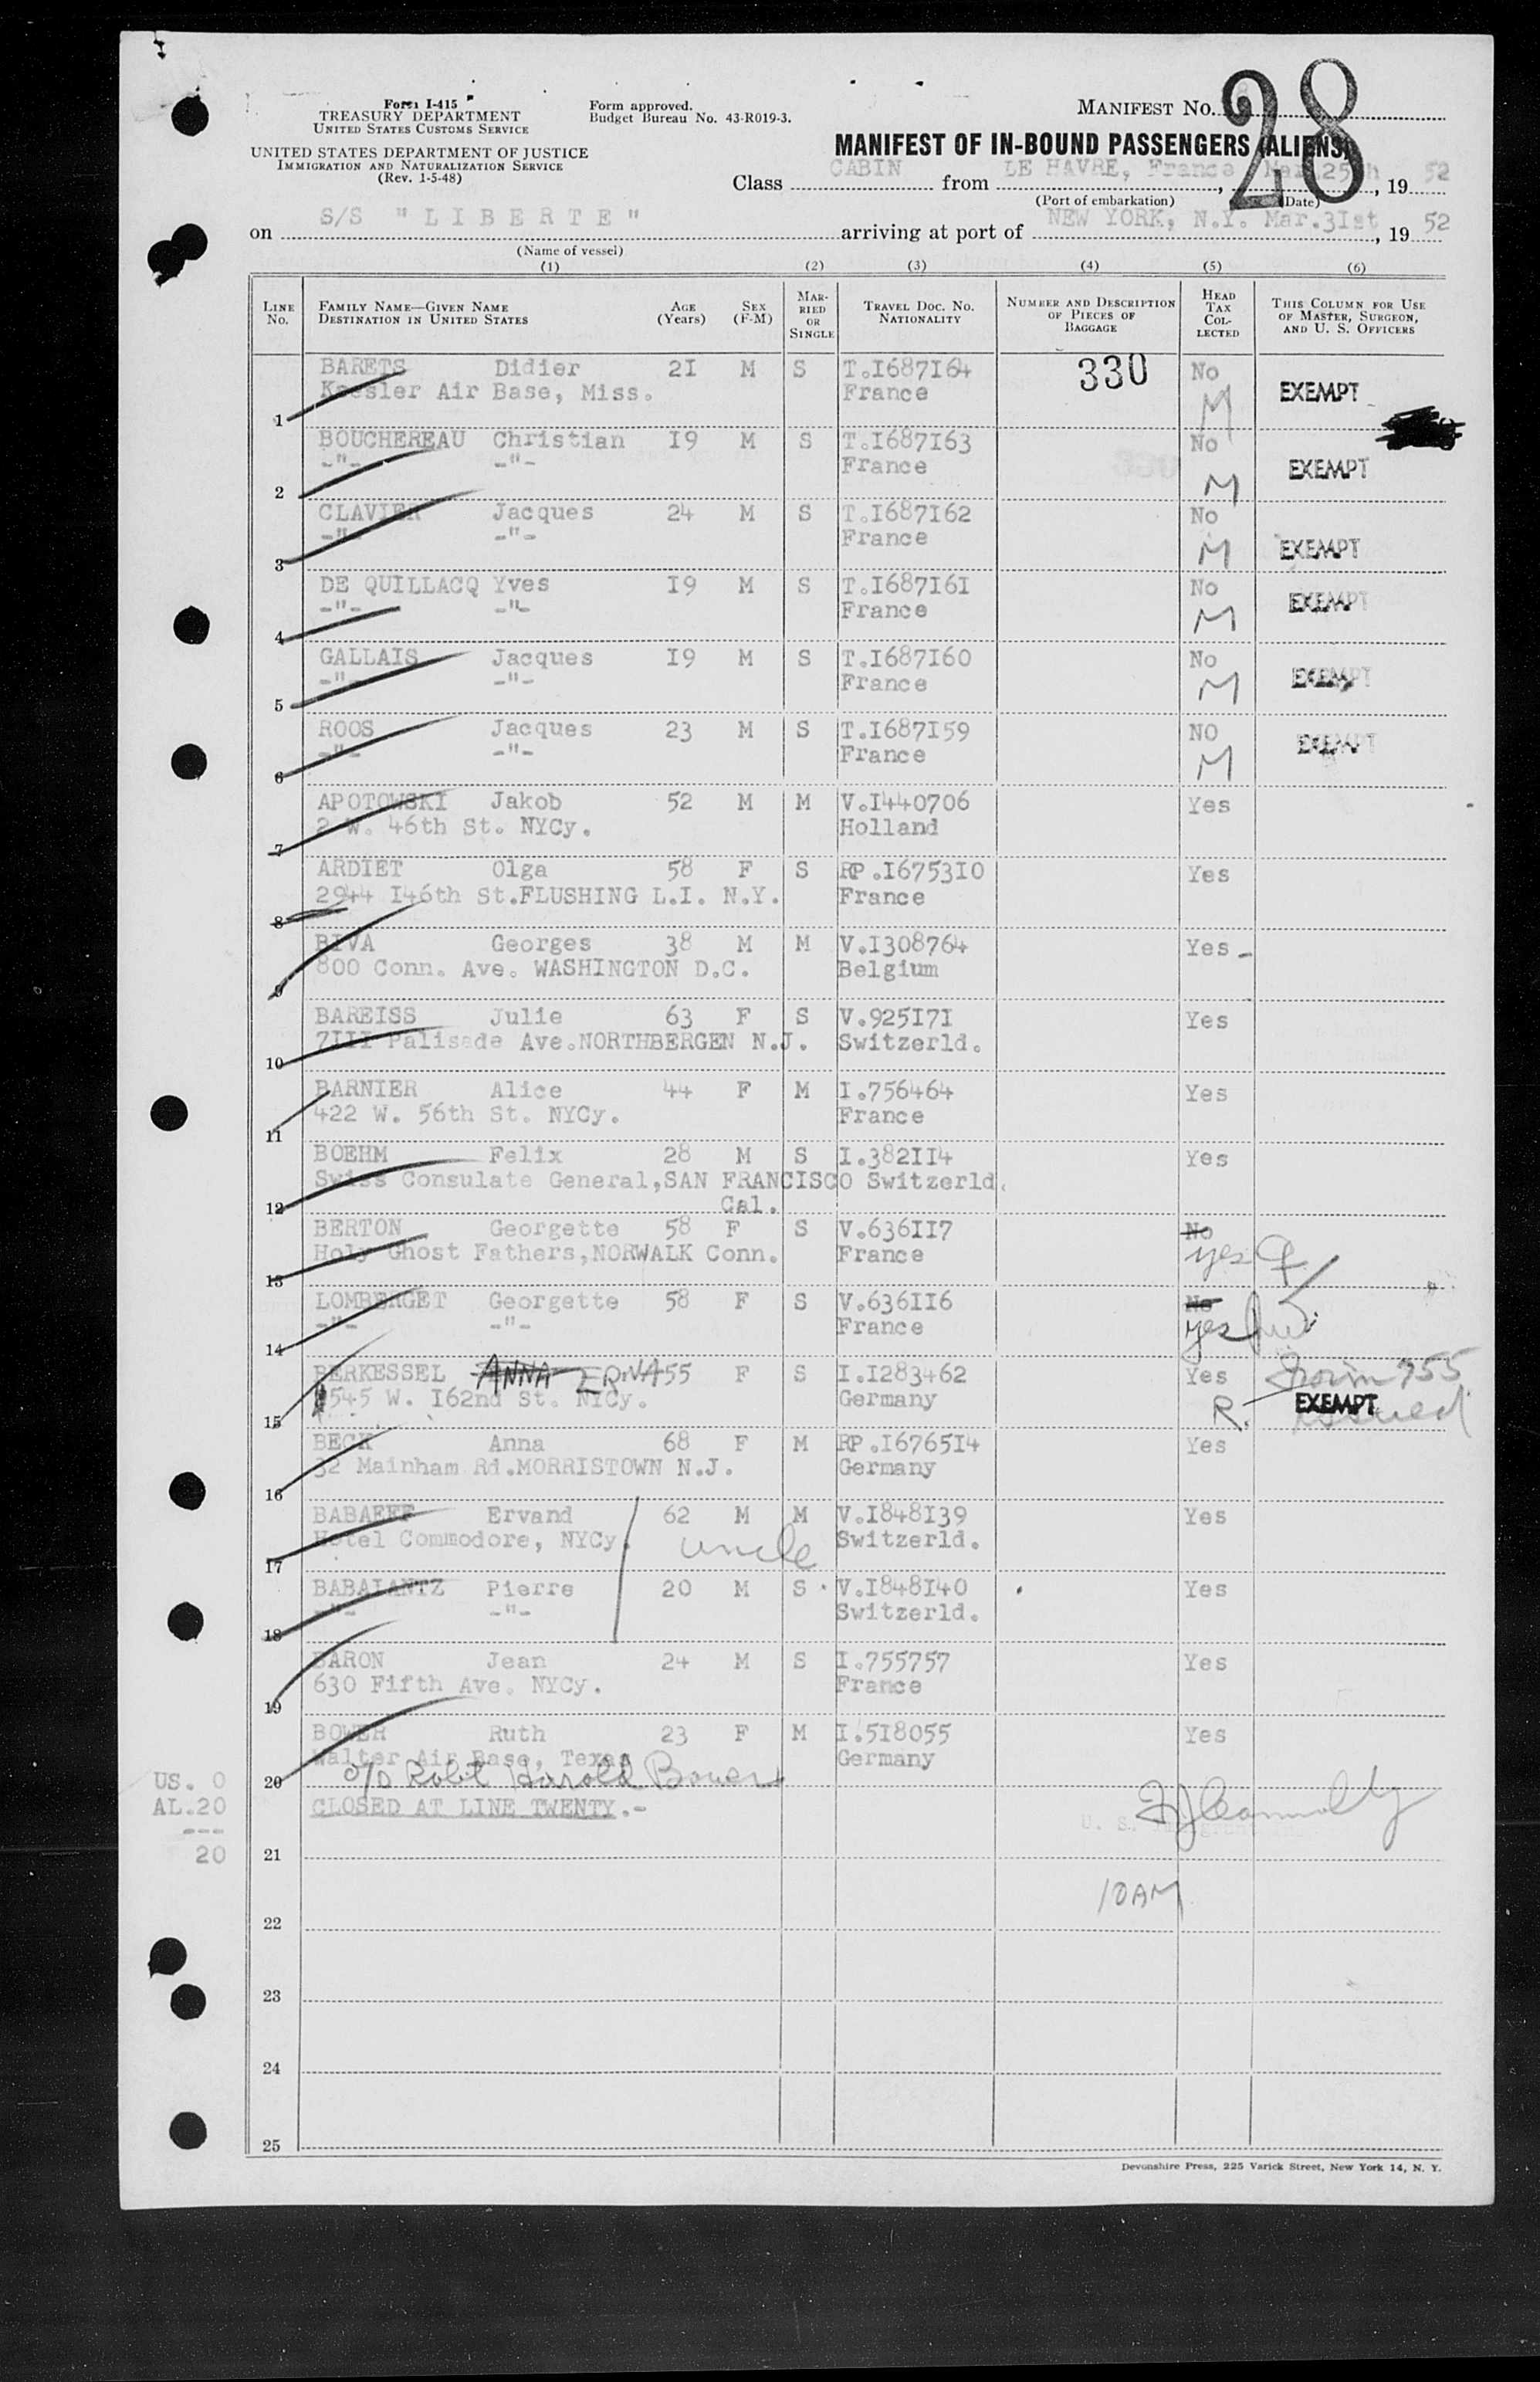 Form I-415
TREASURY DEPARTMENT
UNITED STATES CUSTOMS SERVICE
UNITED STATES DEPARTMENT OF JUSTICE
IMMIGRATION AND NATURALIZATION SERVICE
(Rev. 1-5-48)
Form approved.
Budget Bureau No. 43-R019-3.
MANIFEST No. 28
MANIFEST OF IN-BOUND PASSENGERS (ALIENS)
Class CABIN from LE HAVRE, France, Mar.25th, 19 52
(Port of embarkation) (Date)
on S/S "LIBERTE" arriving at port of NEW YORK, N.Y. Mar.31st, 19 52
(Name of vessel)
(1) (2) (3) (4) (5) (6)
LINE No. FAMILY NAME—GIVEN NAME DESTINATION IN UNITED STATES AGE (Years) SEX (F-M) MARRIED OR SINGLE TRAVEL DOC. NO. NATIONALITY NUMBER AND DESCRIPTION OF PIECES OF BAGGAGE HEAD TAX COLLECTED THIS COLUMN FOR USE OF MASTER, SURGEON, AND U. S. OFFICERS
BARETS Didier 2I M S T.I687I64 330 No
1 Keesler Air Base, Miss. France M EXEMPT
BOUCHEREAU Christian I9 M S T.I687I63 No
2 -"- -"- France M EXEMPT
CLAVIER Jacques 24 M S T.I687I62 No
3 -"- -"- France M EXEMPT
DE QUILLACQ Yves I9 M S T.I687I6I No
4 -"- -"- France M EXEMPT
GALLAIS Jacques I9 M S T.I687I60 No
5 -"- -"- France M EXEMPT
ROOS Jacques 23 M S T.I687I59 NO
6 -"- -"- France M EXEMPT
APOTOWSKI Jakob 52 M M V.I440706 Yes
7 2 W. 46th St. NYCy. Holland
ARDIET Olga 58 F S RP.I6753I0 Yes
8 2944 I46th St.FLUSHING L.I. N.Y. France
BIVA Georges 38 M M V.I308764 Yes -
9 800 Conn. Ave. WASHINGTON D.C. Belgium
BAREISS Julie 63 F S V.925I7I Yes
10 7III Palisade Ave.NORTHBERGEN N.J. Switzerld.
BARNIER Alice 44 F M I.756464 Yes
11 422 W. 56th St. NYCy. France
BOEHM Felix 28 M S I.382II4 Yes
12 Swiss Consulate General,SAN FRANCISCO Switzerld.
Cal.
BERTON Georgette 58 F S V.636II7 No
13 Holy Ghost Fathers,NORWALK Conn. France yes
LOMBERGET Georgette 58 F S V.636II6 No
14 -"- -"- France yes
BERKESSEL ANNA ERNA 55 F S I.I283462 Yes Form 755
15 545 W. I62nd St. NYCy. Germany R. EXEMPT issued
BECK Anna 68 F M RP.I6765I4 Yes
16 32 Mainham Rd.MORRISTOWN N.J. Germany
BABAEFF Ervand 62 M M V.I848I39 Yes
17 Hotel Commodore, NYCy. uncle Switzerld.
BABAIANTZ Pierre 20 M S V.I848I40 Yes
18 -"- -"- Switzerld.
BARON Jean 24 M S I.755757 Yes
19 630 Fifth Ave. NYCy. France
BOWER Ruth 23 F M I.5I8055 Yes
Walter Air Base, Texas Germany
20 c/o Robt Harold Bower
US. 0
AL.20
---
20
CLOSED AT LINE TWENTY.-
U. S.
21
10AM
22
23
24
25
Devonshire Press, 225 Varick Street, New York 14, N. Y.